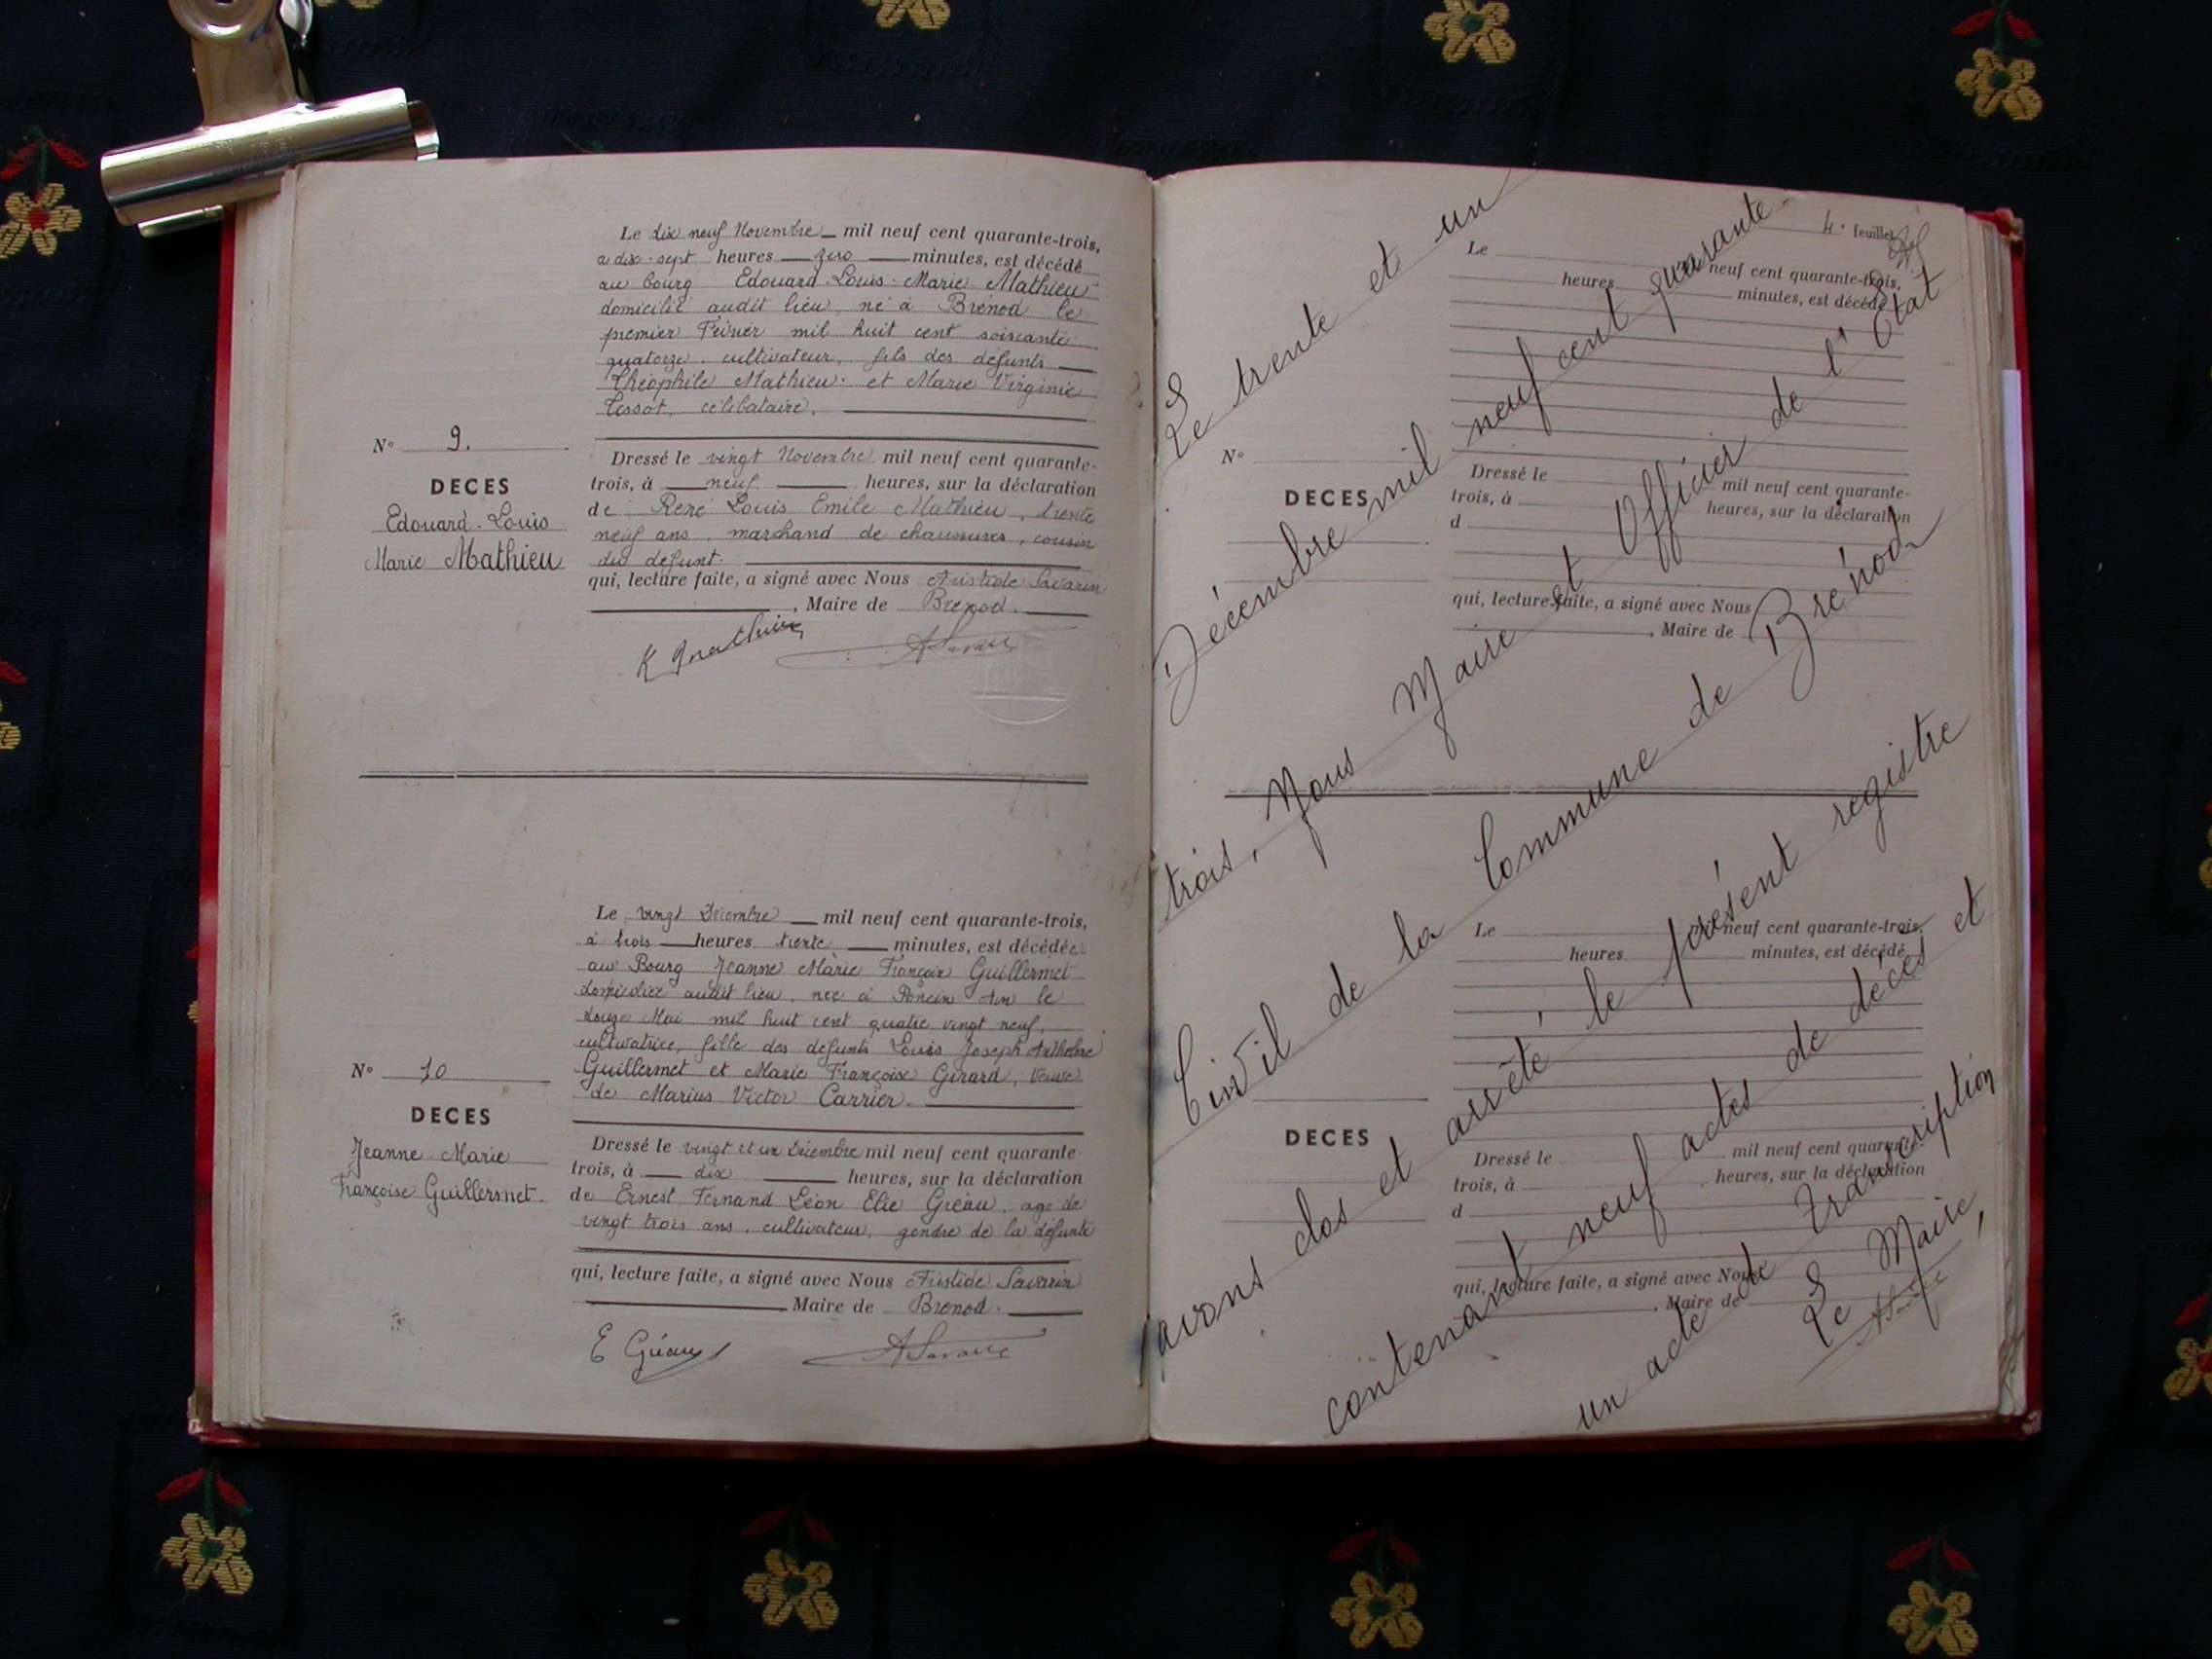 Le dix neuf Novembre mil neuf cent quarante-trois,
a dix-sept heures zero minutes, est décédé
au bourg Edouard Louis Marie Mathieu
domicilié audit lieu, né à Brénod le
premier Février mil huit cent soixante
quatorze, cultivateur, fils des défunts
Théophile Mathieu et Marie Virginie
Tessot, célibataire.
N° 9.
DECES
Edouard-Louis
Marie Mathieu
Dressé le vingt Novembre mil neuf cent quarante-
trois, à neuf heures, sur la déclaration
de René Louis Emile Mathieu, trente
neuf ans, marchand de chaussures, cousin
du defunt.
qui, lecture faite, a signé avec Nous Aristide Savarin
, Maire de Brenod.
Le vingt Décembre mil neuf cent quarante-trois,
à trois heures trente minutes, est décédée
au Bourg Jeanne Marie Françoise Guillermet
domiciliée audit lieu, née à Poncin Ain le
douze Mai mil huit cent quatre vingt neuf,
cultivatrice, fille des défunts Louis Joseph Anthelme
Guillermet et Marie Françoise Girard, Veuve
de Marius Victor Carrier.
N° 10
DECES
Jeanne-Marie
Françoise Guillermet.
Dressé le vingt et un Décembre mil neuf cent quarante-
trois, à dix heures, sur la déclaration
de Ernest Fernand Léon Elie Gréau, age de
vingt trois ans, cultivateur, gendre de la défunte
qui, lecture faite, a signé avec Nous Aristide Savarin
, Maire de Brenod.
E Gréau
4e feuillet
Le neuf cent quarante-trois,
heures minutes, est décédé
N°
DECES
Dressé le mil neuf cent quarante-
trois, à heures, sur la déclaration
d
qui, lecture faite, a signé avec Nous
, Maire de
Le neuf cent quarante-trois,
heures minutes, est décédé
DECES
Dressé le mil neuf cent quarante-
trois, à heures, sur la déclaration
d
qui, lecture faite, a signé avec Nous
, Maire de
Le trente et un
Décembre mil neuf cent quarante-
trois, Nous Maire et Officier de l'Etat
Civil de la Commune de Brénod
avons clos et arrêté le présent registre
contenant neuf actes de décès et
un acte de transcription
Le Maire,